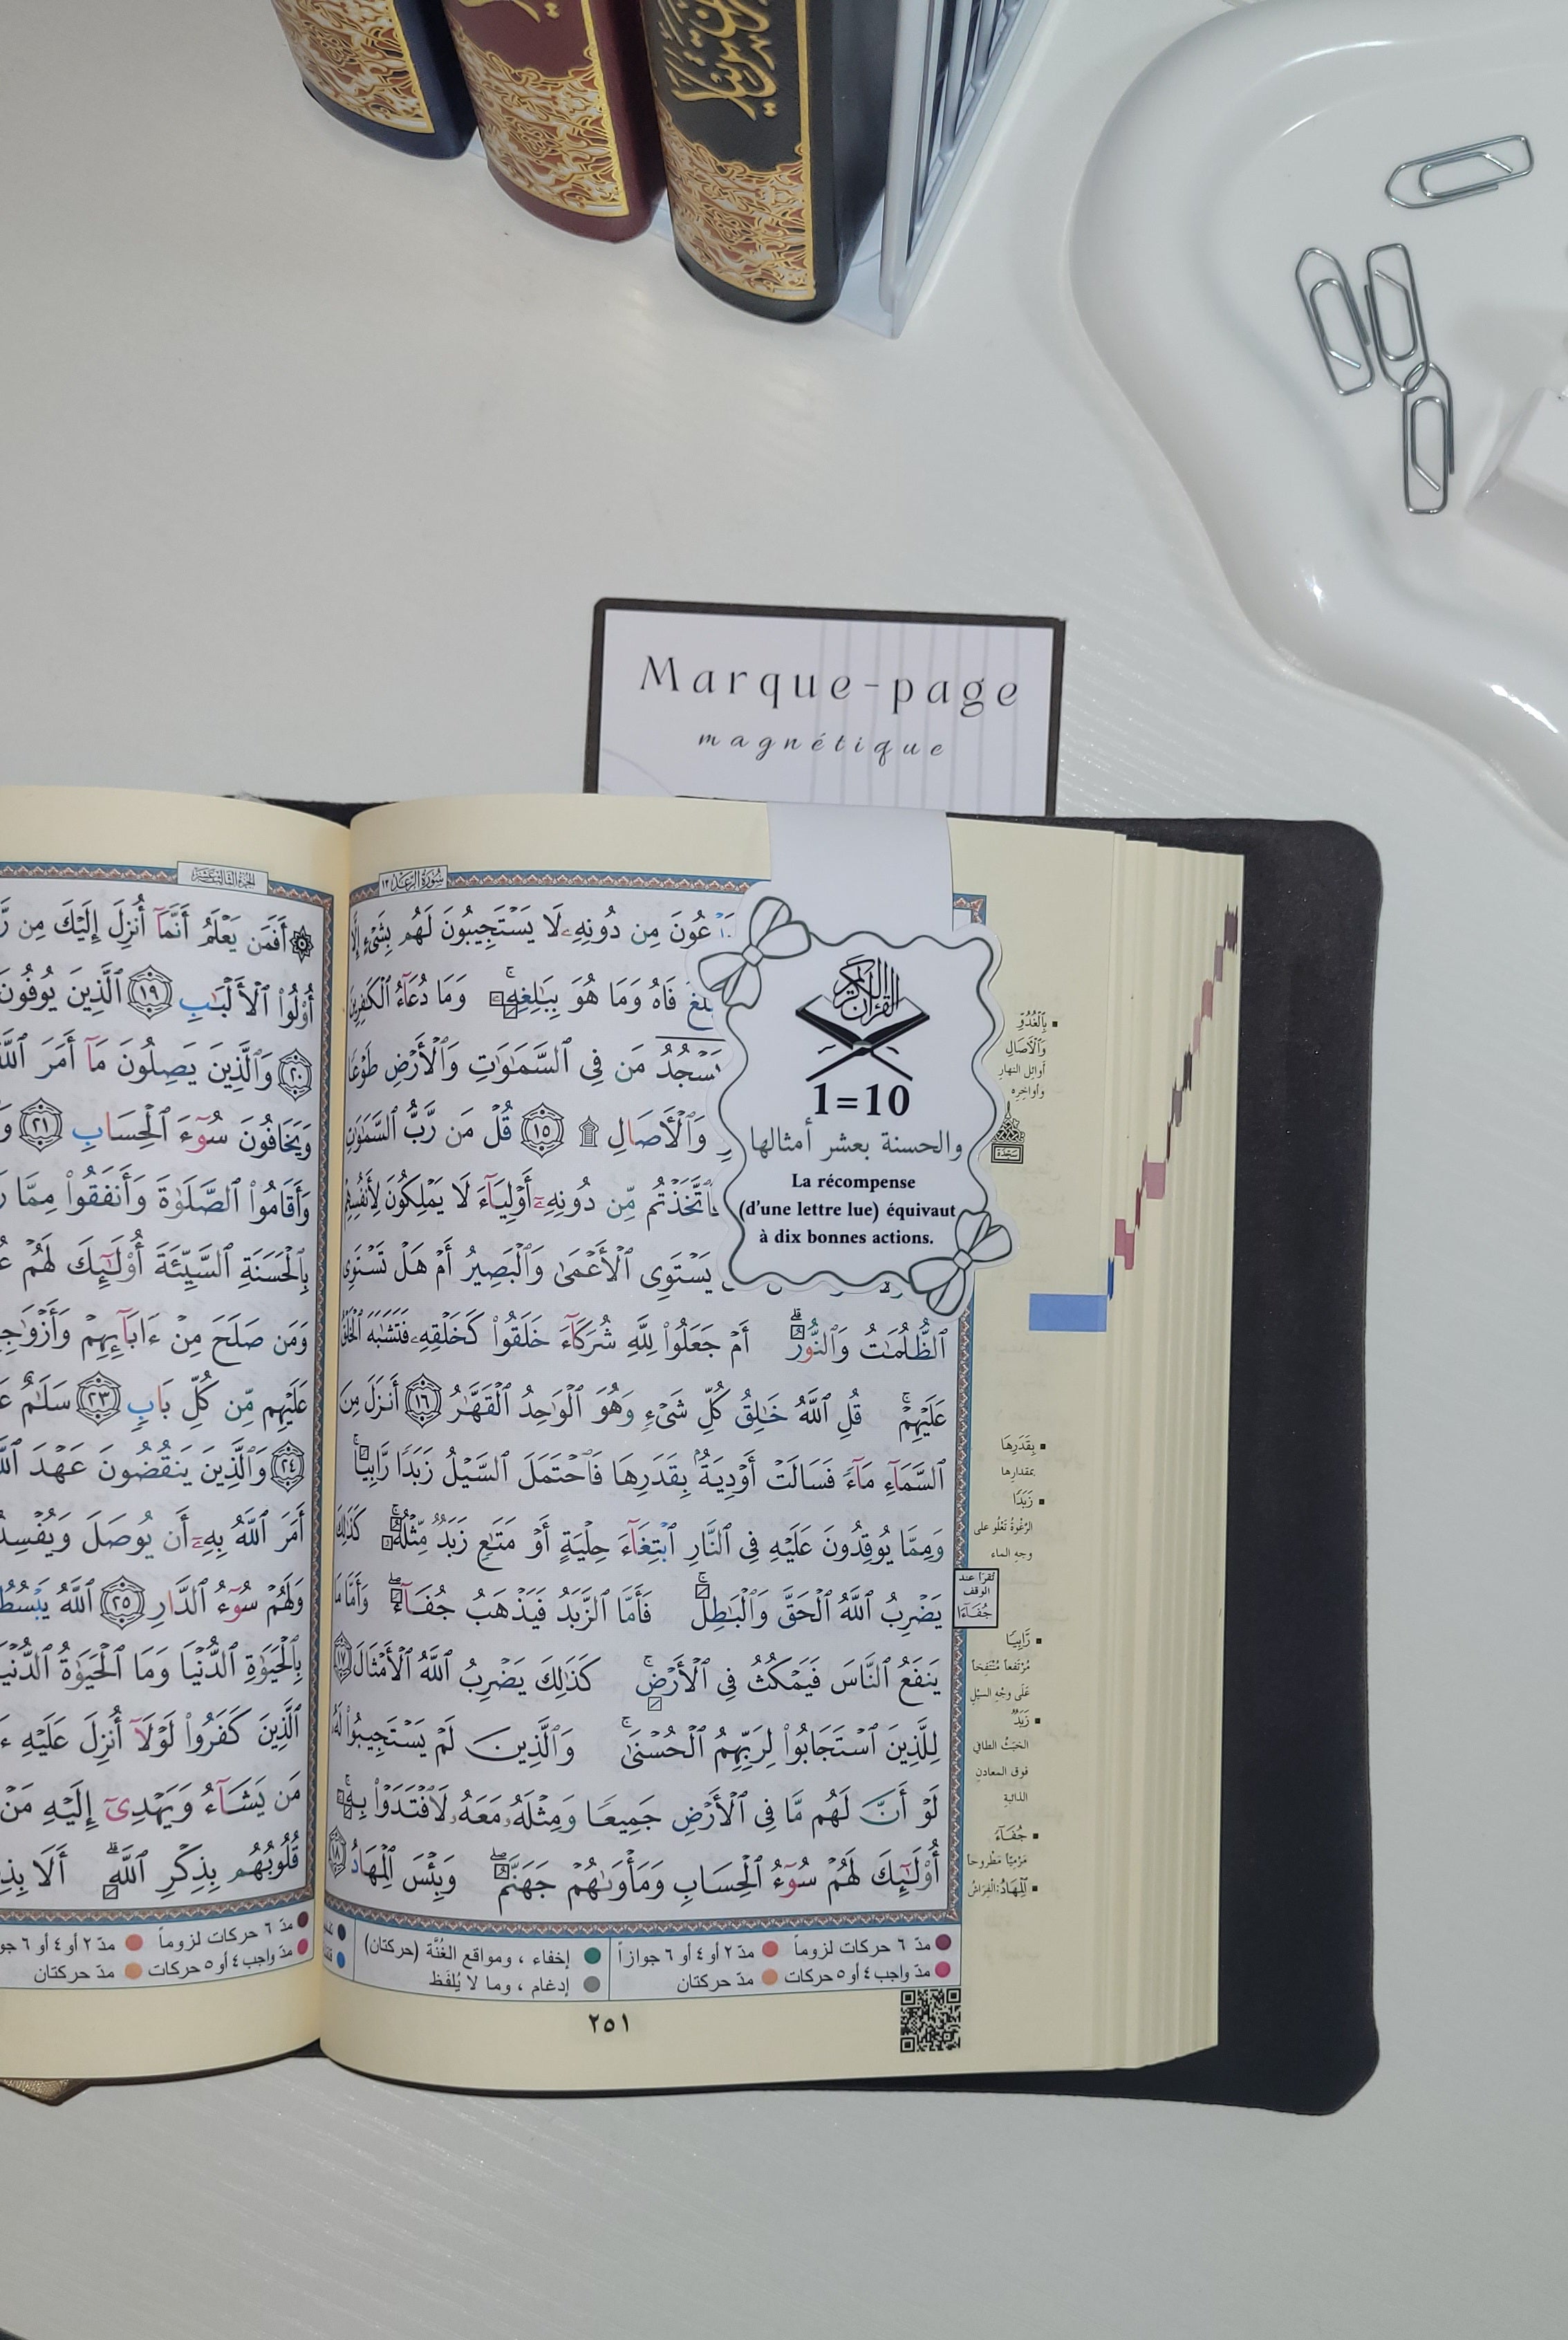 Marque-page
magnétique
القرآن الكريم
1=10
والحسنة بعشر أمثالها
La récompense
(d'une lettre lue) équivaut
à dix bonnes actions.
سُورَةُ الرَّعْدِ ١٣
عُونَ مِن دُونِهِۦ لَا يَسْتَجِيبُونَ لَهُم بِشَىْءٍ إِلَّا
فَاهُ وَمَا هُوَ بِبَٰلِغِهِۦ وَمَا دُعَآءُ ٱلْكَٰفِرِينَ
مَن فِى ٱلسَّمَٰوَٰتِ وَٱلْأَرْضِ طَوْعًا
وَٱلْءَاصَالِ ۩ ١٥ قُلْ مَن رَّبُّ ٱلسَّمَٰوَٰتِ
ٱتَّخَذْتُم مِّن دُونِهِۦٓ أَوْلِيَآءَ لَا يَمْلِكُونَ لِأَنفُسِهِمْ
يَسْتَوِى ٱلْأَعْمَىٰ وَٱلْبَصِيرُ أَمْ هَلْ تَسْتَوِى
ٱلظُّلُمَٰتُ وَٱلنُّورُ ۗ أَمْ جَعَلُوا۟ لِلَّهِ شُرَكَآءَ خَلَقُوا۟ كَخَلْقِهِۦ فَتَشَٰبَهَ ٱلْخَلْقُ
عَلَيْهِمْ ۚ قُلِ ٱللَّهُ خَٰلِقُ كُلِّ شَىْءٍ وَهُوَ ٱلْوَٰحِدُ ٱلْقَهَّٰرُ ١٦ أَنزَلَ مِنَ
ٱلسَّمَآءِ مَآءً فَسَالَتْ أَوْدِيَةٌۢ بِقَدَرِهَا فَٱحْتَمَلَ ٱلسَّيْلُ زَبَدًا رَّابِيًا ۚ
وَمِمَّا يُوقِدُونَ عَلَيْهِ فِى ٱلنَّارِ ٱبْتِغَآءَ حِلْيَةٍ أَوْ مَتَٰعٍ زَبَدٌ مِّثْلُهُۥ ۚ كَذَٰلِكَ
يَضْرِبُ ٱللَّهُ ٱلْحَقَّ وَٱلْبَٰطِلَ ۚ فَأَمَّا ٱلزَّبَدُ فَيَذْهَبُ جُفَآءً ۖ وَأَمَّا مَا
يَنفَعُ ٱلنَّاسَ فَيَمْكُثُ فِى ٱلْأَرْضِ ۚ كَذَٰلِكَ يَضْرِبُ ٱللَّهُ ٱلْأَمْثَالَ ١٧
لِلَّذِينَ ٱسْتَجَابُوا۟ لِرَبِّهِمُ ٱلْحُسْنَىٰ ۚ وَٱلَّذِينَ لَمْ يَسْتَجِيبُوا۟ لَهُۥ
لَوْ أَنَّ لَهُم مَّا فِى ٱلْأَرْضِ جَمِيعًا وَمِثْلَهُۥ مَعَهُۥ لَٱفْتَدَوْا۟ بِهِۦٓ ۚ
أُو۟لَٰٓئِكَ لَهُمْ سُوٓءُ ٱلْحِسَابِ وَمَأْوَىٰهُمْ جَهَنَّمُ ۖ وَبِئْسَ ٱلْمِهَادُ ١٨
بِٱلْغُدُوِّ
وَٱلْءَاصَالِ
أوائل النهار
وأواخره
سجدة
بِقَدَرِهَا
بمقدارها
زَبَدًا
الرّغوة تعلو على
وجه الماء
تقرأ عند
الوقف
جُفَاءَا
رَّابِيًا
مرتفعاً منتفخاً
على وجه السيل
زَبَدٌ
الخبث الطافي
فوق المعادن
الذائبة
جُفَآءً
مرميّاً مطروحاً
ٱلْمِهَادُ: الفراش
مدّ ٦ حركات لزوماً مدّ ٢ أو ٤ أو ٦ جوازاً إخفاء ، ومواقع الغُنَّة (حركتان)
مدّ واجب ٤ أو ٥ حركات مدّ حركتان إدغام ، وما لا يُلفَظ
٢٥١
الجزء الثالث عشر
۞ أَفَمَن يَعْلَمُ أَنَّمَآ أُنزِلَ إِلَيْكَ مِن
أُو۟لُوا۟ ٱلْأَلْبَٰبِ ١٩ ٱلَّذِينَ يُوفُونَ
٢٠ وَٱلَّذِينَ يَصِلُونَ مَآ أَمَرَ ٱللَّهُ
وَيَخَافُونَ سُوٓءَ ٱلْحِسَابِ ٢١
وَأَقَامُوا۟ ٱلصَّلَوٰةَ وَأَنفَقُوا۟ مِمَّا
بِٱلْحَسَنَةِ ٱلسَّيِّئَةَ أُو۟لَٰٓئِكَ لَهُمْ
وَمَن صَلَحَ مِنْ ءَابَآئِهِمْ وَأَزْوَٰجِ
عَلَيْهِم مِّن كُلِّ بَابٍ ٢٣ سَلَٰمٌ
٢٤ وَٱلَّذِينَ يَنقُضُونَ عَهْدَ ٱللَّهِ
أَمَرَ ٱللَّهُ بِهِۦٓ أَن يُوصَلَ وَيُفْسِدُ
وَلَهُمْ سُوٓءُ ٱلدَّارِ ٢٥ ٱللَّهُ يَبْسُطُ
بِٱلْحَيَوٰةِ ٱلدُّنْيَا وَمَا ٱلْحَيَوٰةُ ٱلدُّنْيَا
ٱلَّذِينَ كَفَرُوا۟ لَوْلَآ أُنزِلَ عَلَيْهِ
مَن يَشَآءُ وَيَهْدِىٓ إِلَيْهِ مَنْ
قُلُوبُهُم بِذِكْرِ ٱللَّهِ ۗ أَلَا
مدّ ٦ حركات لزوماً مدّ ٢ أو ٤ أو ٦
مدّ واجب ٤ أو ٥ حركات مدّ حركتان